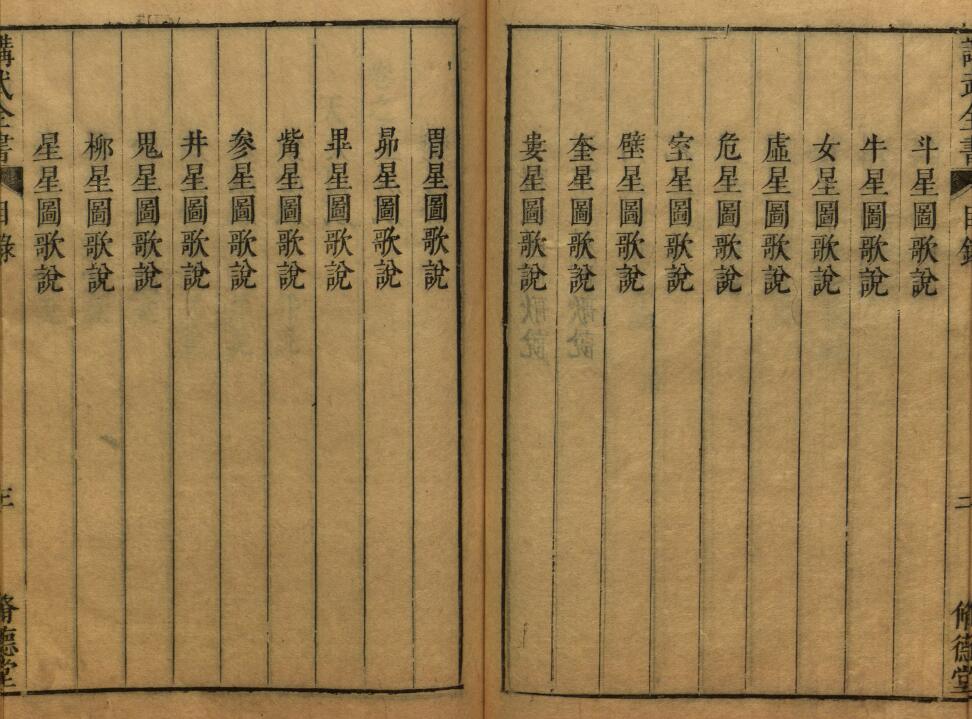 講武全書
目錄
二
脩德堂
斗星圖歌說
牛星圖歌說
女星圖歌說
虛星圖歌說
危星圖歌說
室星圖歌說
壁星圖歌說
奎星圖歌說
婁星圖歌說
胃星圖歌說
昴星圖歌說
畢星圖歌說
觜星圖歌說
參星圖歌說
井星圖歌說
鬼星圖歌說
柳星圖歌說
星星圖歌說
講武全書
目錄
三
脩德堂